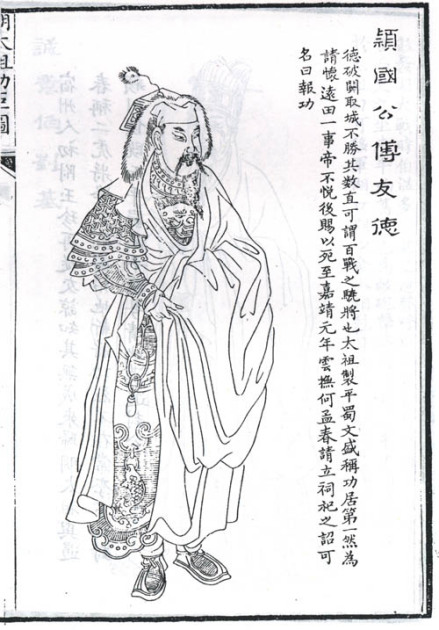 頴國公傅友德
德破關取城不勝其数直可謂百戰之驍將也太祖製平蜀文盛稱功居第一然為
請懷遠田一事帝不悅後賜以死至嘉靖元年雲撫何孟春請立祠祀之詔可
名曰報功
明太祖功臣圖